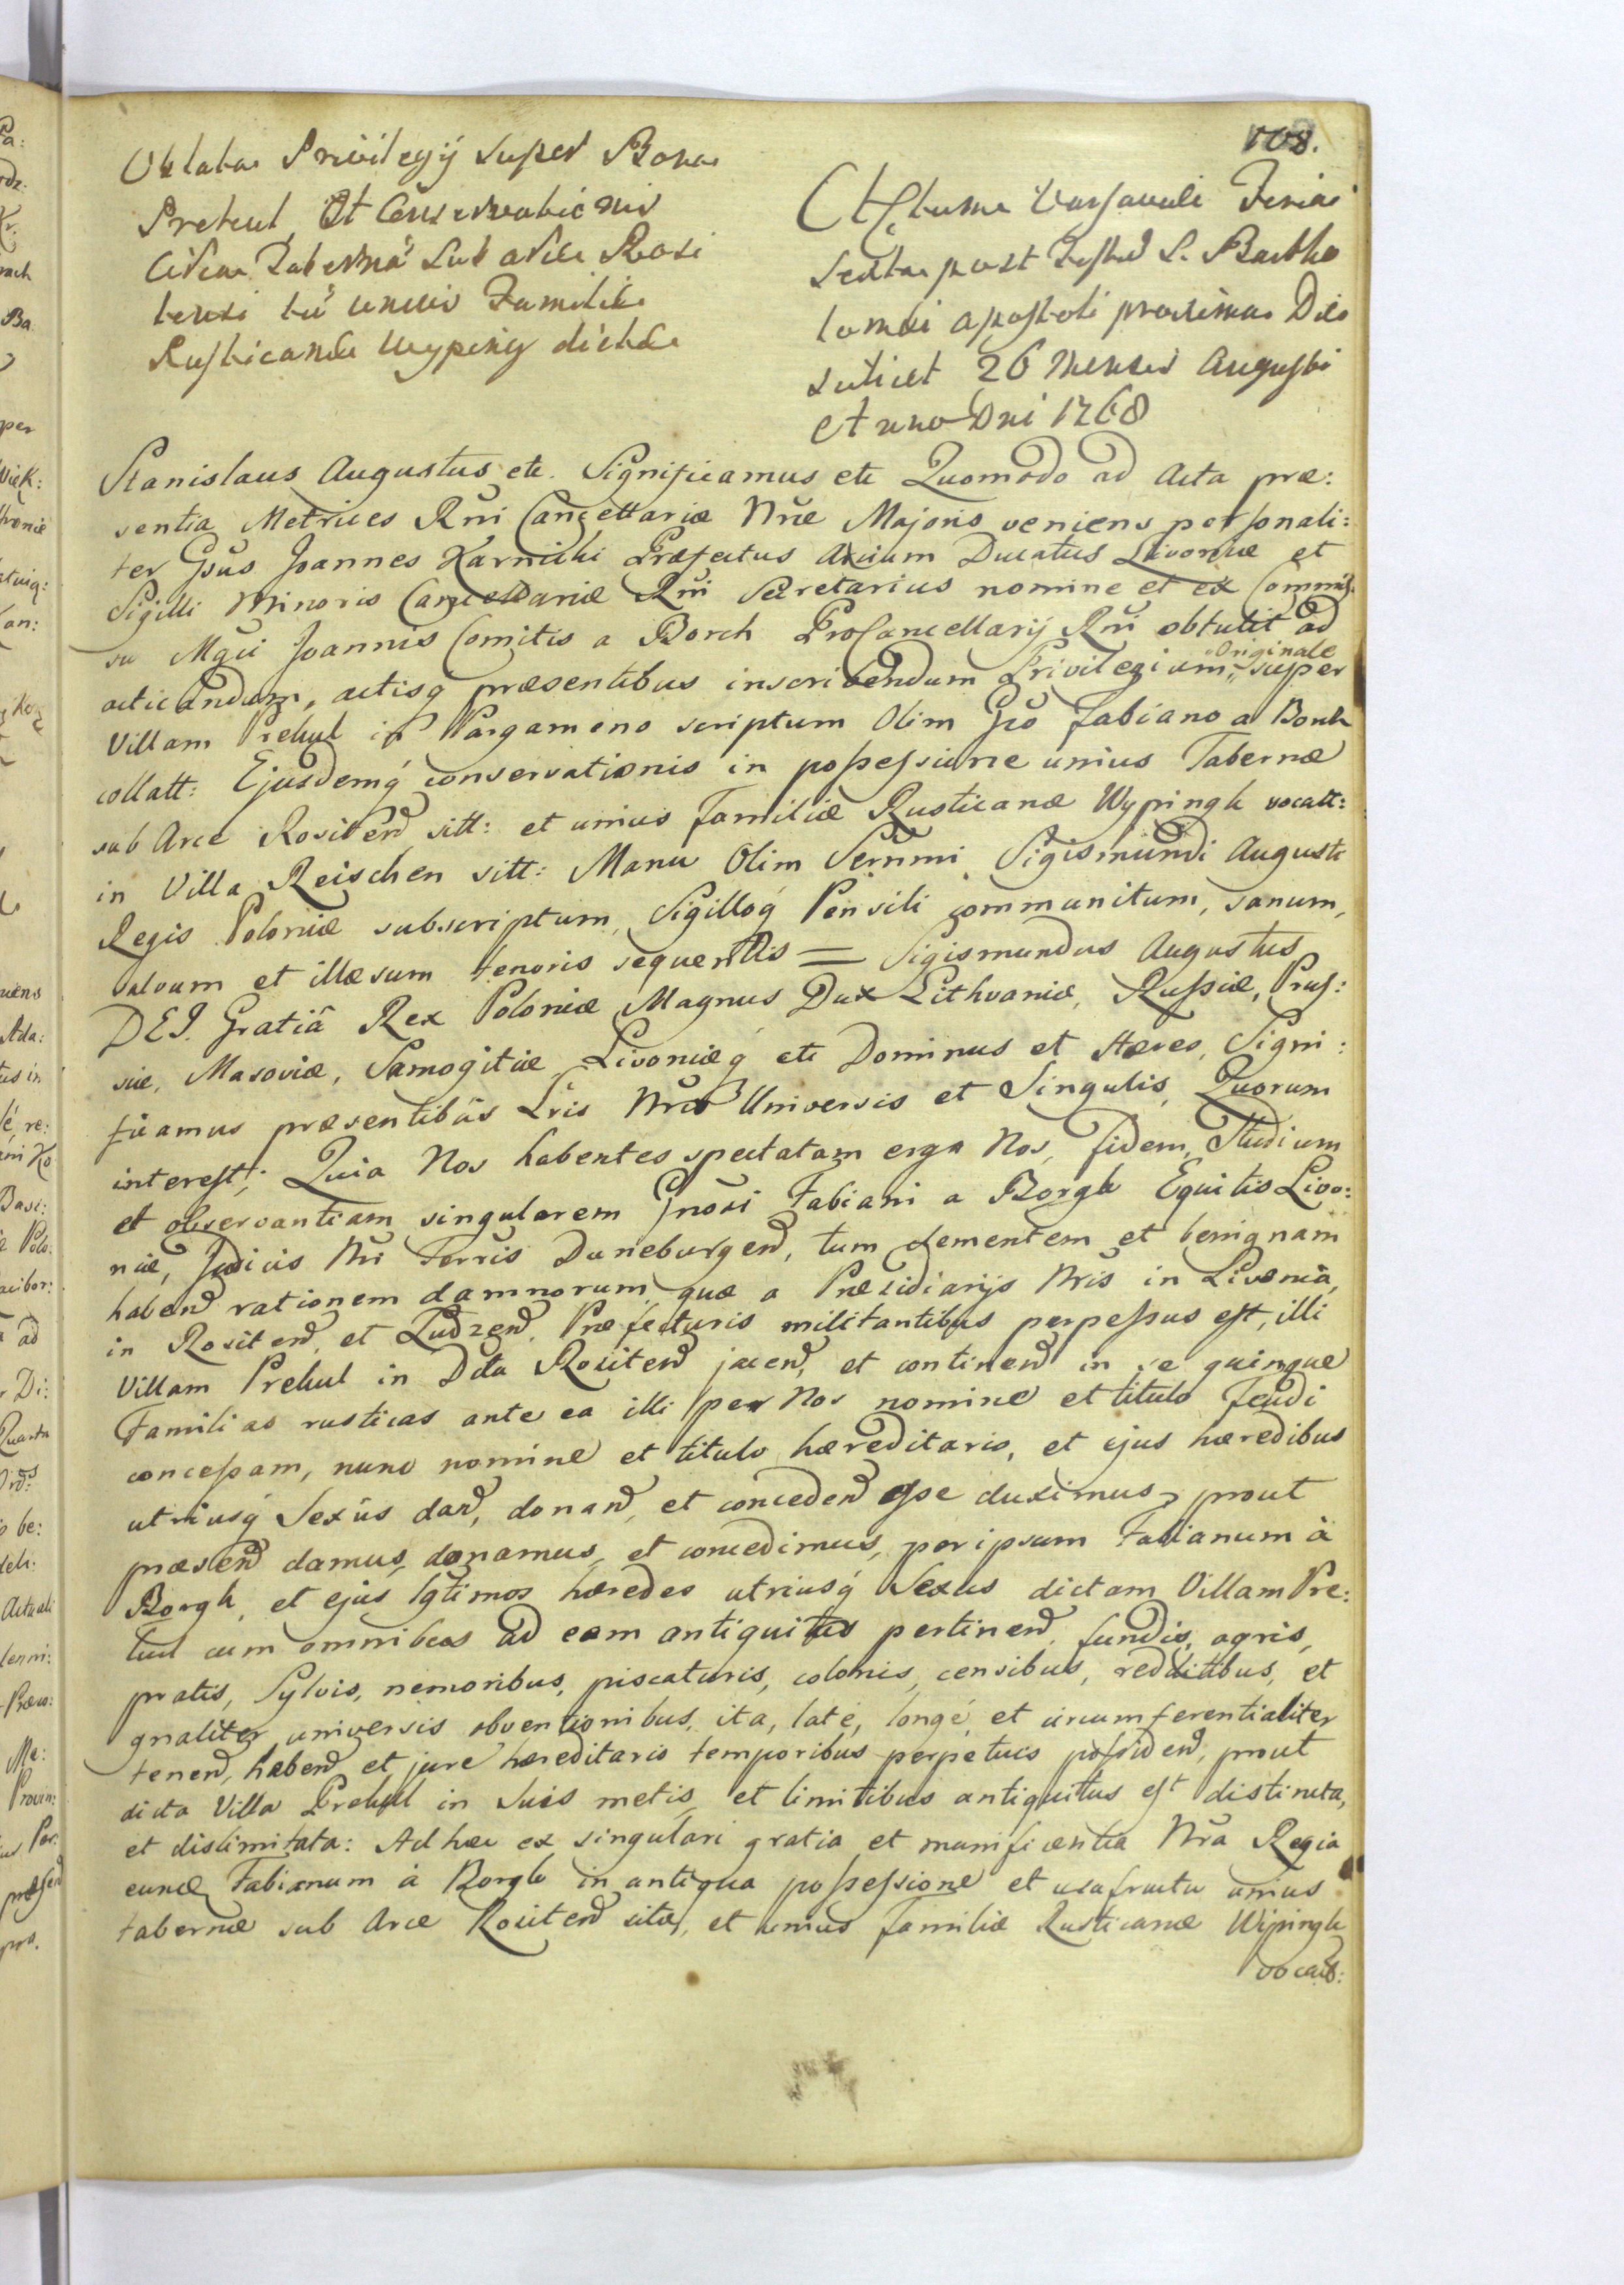 108.
Oblata Privilegÿ super Bona
Pretcul, Et Conservationis
Circa Tabernã sub arce Rosi
tensi tũ unius Familiæ
Rusticanæ Wyping dictæ
Actum Varsaviæ Feria
sexta post Festũ S. Bartho
lomæi Apostoli proxima Die
scilicet 26 Mensis Augusti
Anno Dni 1768
Stanislaus Augustus etc. Significamus etc Quomodo ad Acta præ:
sentia Metrices Rñi Cancellariæ Nræ Majoris veniens personali:
ter Gsũs Joannes Karnicki Præfectus Axium Ducatus Livoniæ et
Sigilli Minoris Cancellariæ Rñi Secretarius nomine et ex Commis:
su Mgci Joannis Comitis a Borch ProCancellarÿ Rñi obtulit ad
acticandum, actisq́ præsentibus inscribendum Privilegium Originale super
Villam Prehul in Pargameno scriptum Olim Gso Fabiano a Borch
collatt: Ejusdemq́ conservationis in possessione unius Tabernæ
sub Arce Rositen̄ sitt: et unius Familiæ Rusticanæ Wypingh vocatt:
in Villa Reischen sitt: Manu Olim Sernmi Sigismundi Augusti
Regis Poloniæ subscriptum, Sigilloq́ Pensili communitum, sanum,
salvum et illæsum tenoris sequentis = Sigismundus Augustus
DEI. Gratiâ Rex Poloniæ Magnus Dux Lithvaniæ, Russiæ, Prus:
siæ, Masoviæ, Samogitiæ Livoniæq́ etc Dominus et Hæres, Signi:
ficamus præsentibus Lris Nris Universis et Singulis, Quorum
interest; Quia Nos habentes spectatam erga Nos, fidem, Studium
et observantiam singularem Gnosi Fabiani a Borgh Equitis Livo:
niæ, Judicis Nri Terris Duneburgen̄, tum clementem et benignam
haben̄ rationem damnorum quæ a Præsidiarÿs Nris in Livonia,
in Rositen̄ et Ludzen̄ Præfecturis militantibus perpessus est, illi
Villam Prehul in Dta Rositen̄ jacen̄, et continen̄ in se quinque
Familias rusticas ante ea illi per Nos nomine et titulo Feudi
concessam, nunc nomine et titulo hæreditario, et ejus hæredibus
utriusq́ Sexûs dan̄, donan̄, et conceden̄ esse duximus, prout
præsen̄ damus, donamus, et concedimus, per ipsum Fabianum à
Borgh, et ejus lgtimos hæredes utriusq́ Sexus dictam Villam Pre:
hul cum omnibus ad eam antiquitus pertinen̄ fundis, agris,
pratis, Sylvis, nemoribus, piscaturis, colonis, censibus, redditibus, et
gnaliter universis obventionibus, ita, latè, longè, et circumferentialiter
tenen̄, haben̄ et jure hæreditario temporibus perpetuis possiden̄, prout
dicta Villa Prehul in suis metis et limitibus antiquitus est distincta,
et dislimitata: Ad hæc ex singulari gratia et munificentia Nra Regia
eundẽ Fabianum à Borgh in antiqua possessione et usufructu unius
tabernæ sub Arce Rositen̄ sitæ, et unius Familiæ Rusticanæ Wÿpingh
vocatt: